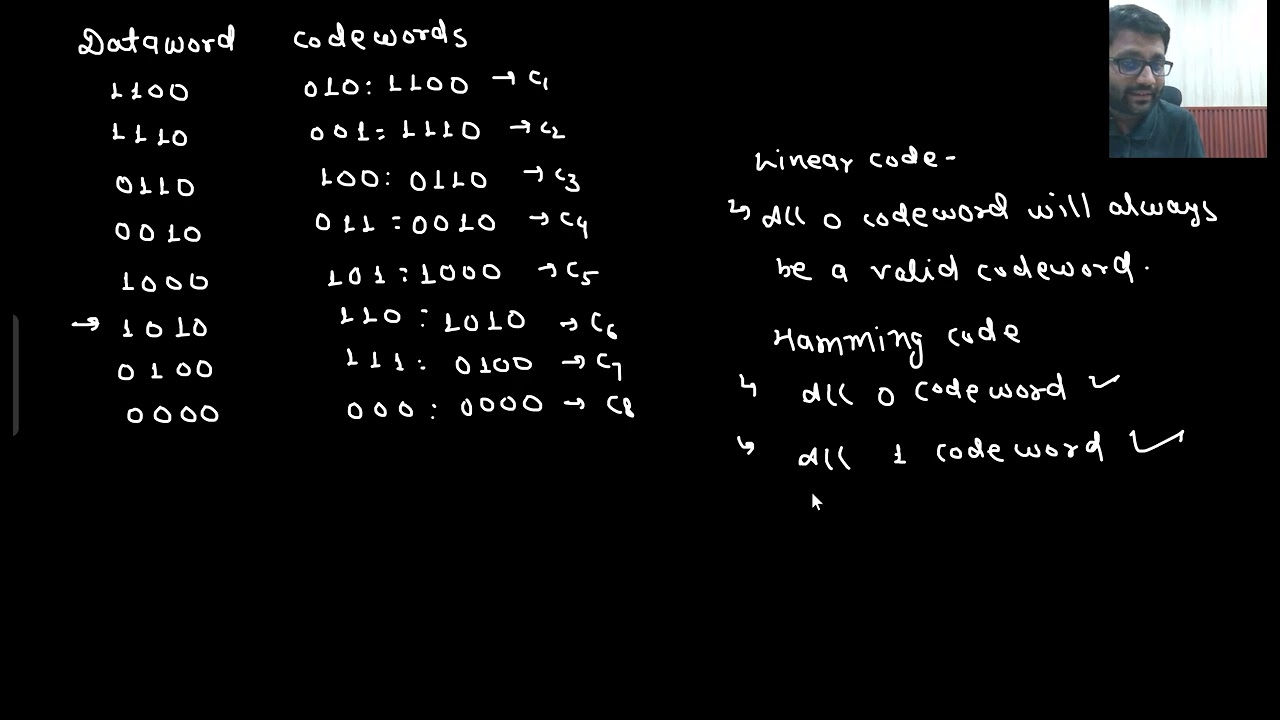 Dataword codewords
1100 010:1100 → C1
1110 001:1110 → C2
0110 100:0110 → C3
0010 011:0010 → C4
1000 101:1000 → C5
→ 1010 110:1010 → C6
0100 111:0100 → C7
0000 000:0000 → C8
Linear code-
↳ All 0 codeword will always
be a valid codeword.
Hamming code
↳ All 0 codeword ✓
↳ All 1 codeword ✓